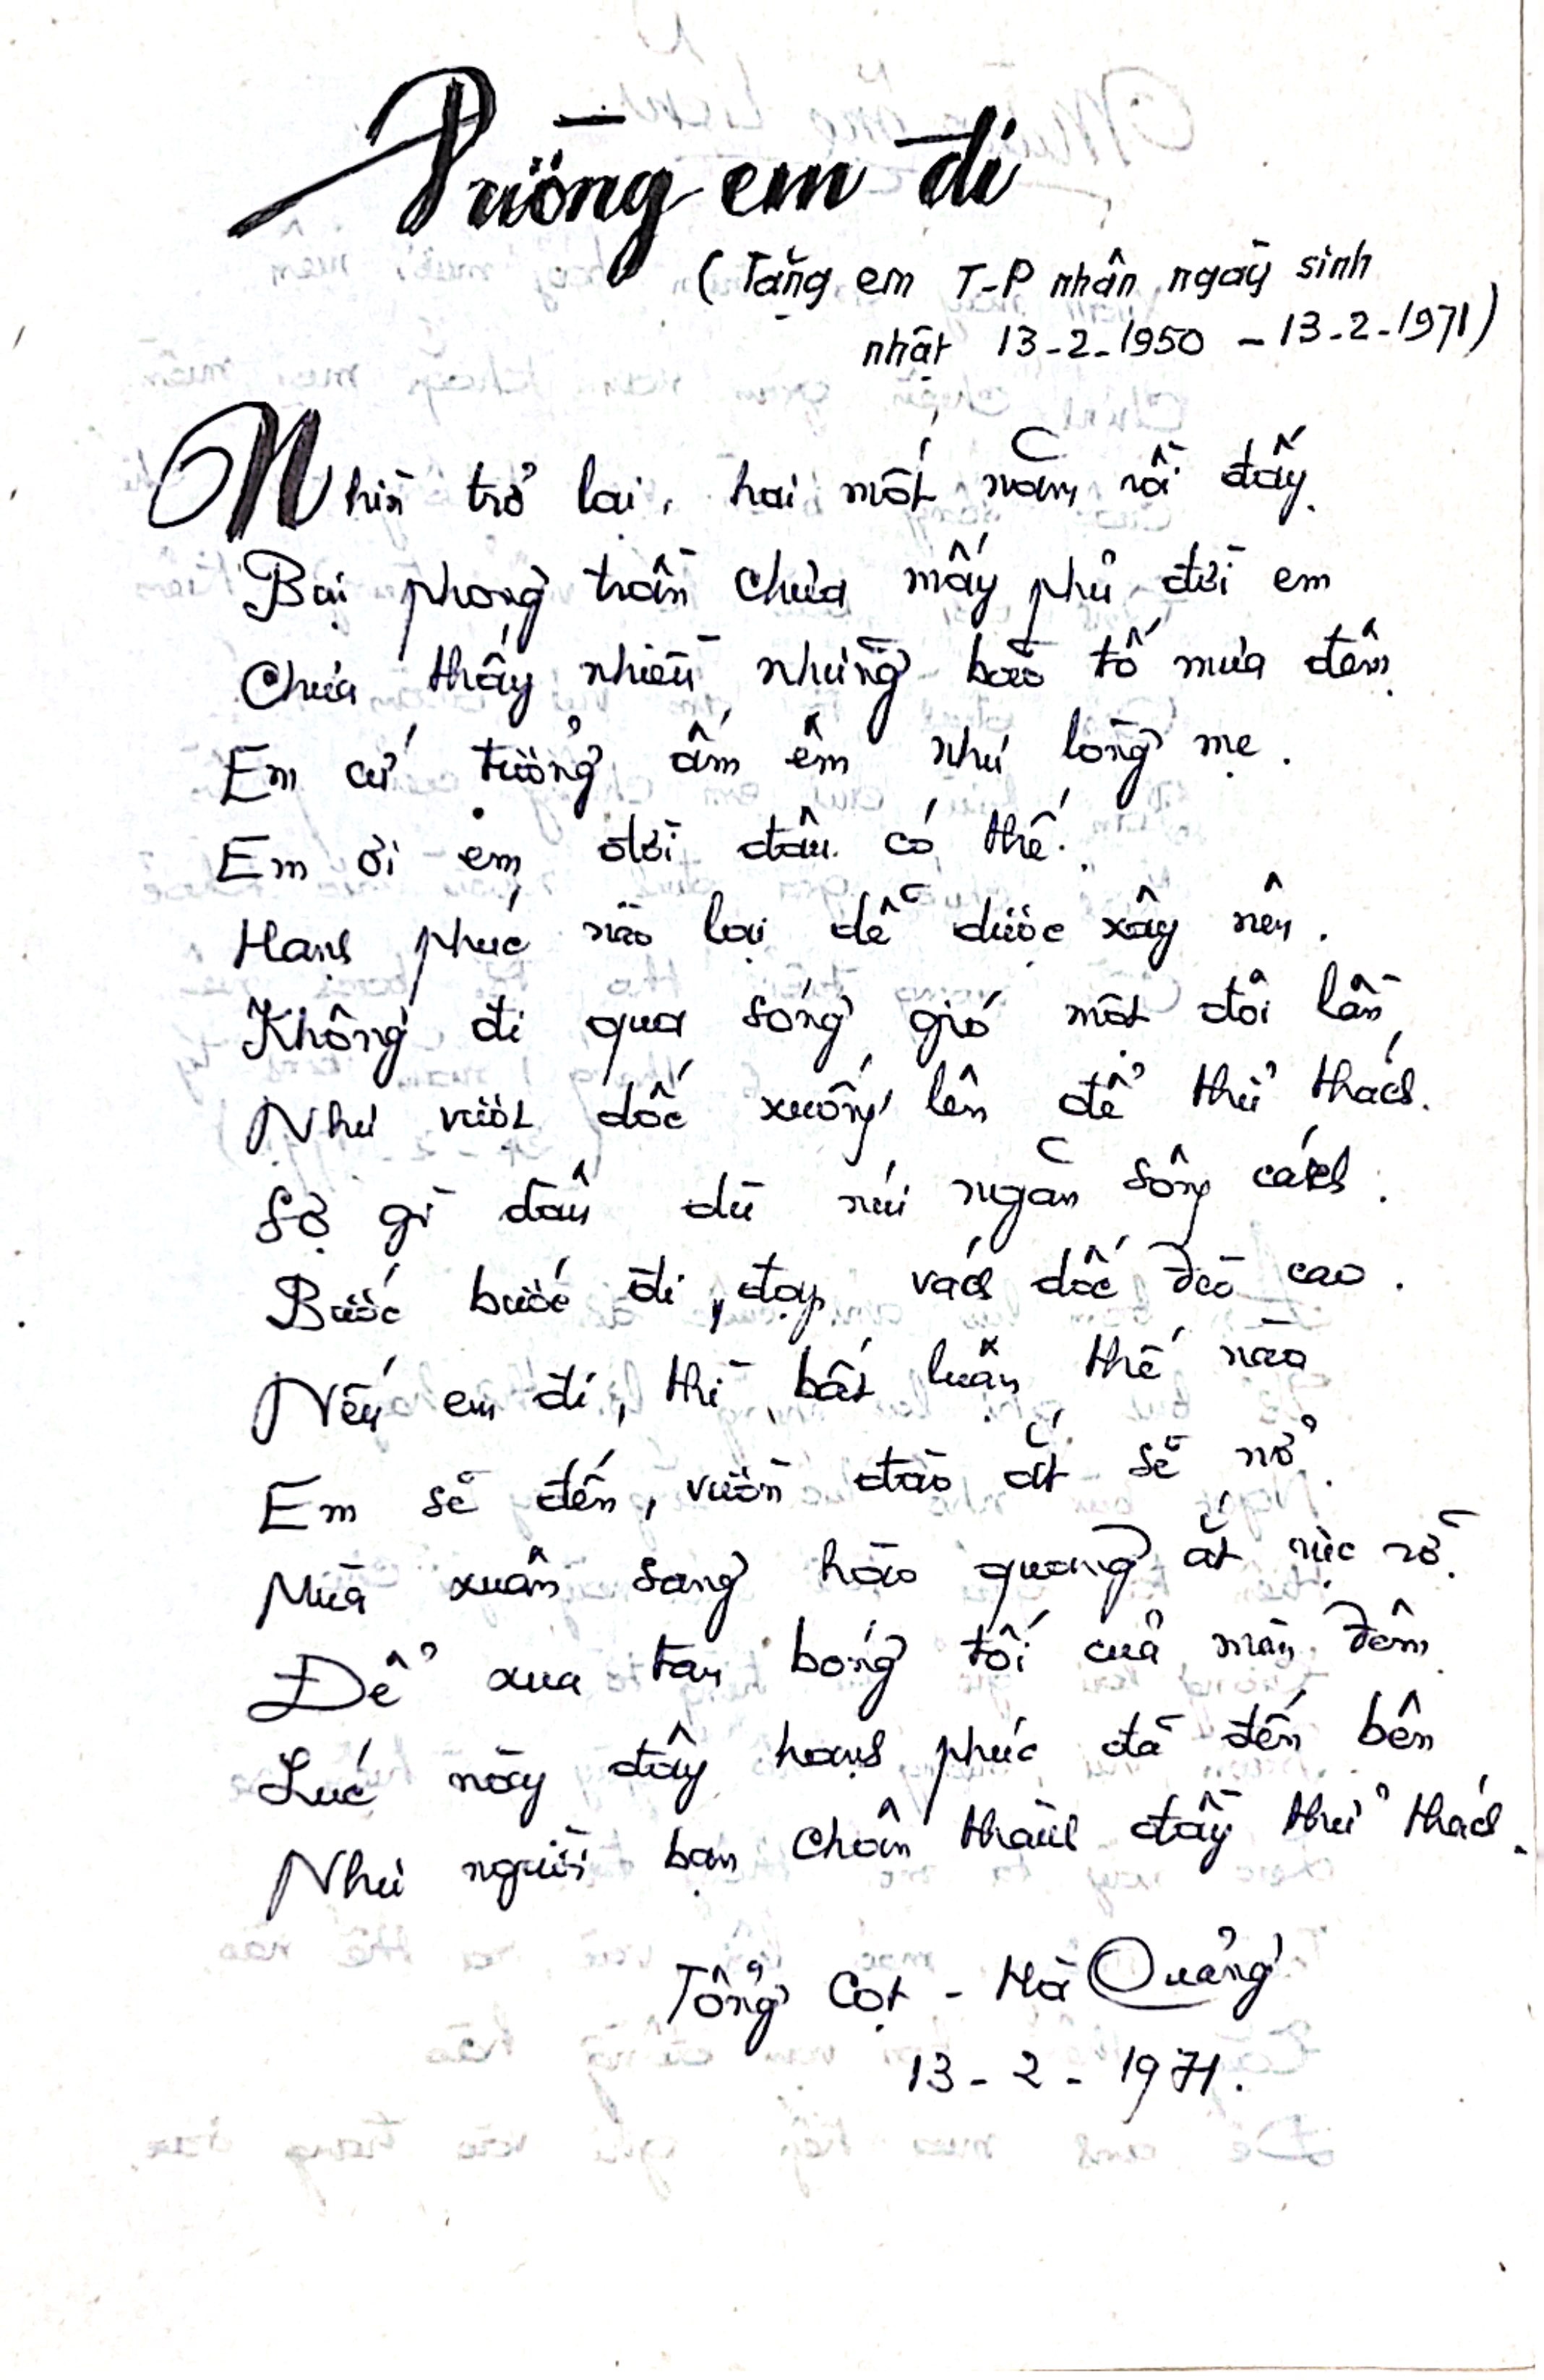 Đường em đi
(Tặng em T-P nhân ngày sinh
nhật 13-2-1950 - 13-2-1971)
Nhìn trở lại, hai mốt năm rồi đấy.
Bụi phong trần chưa mấy phủ đời em
Chưa thấy nhiều những bão tố mưa đêm
Em cứ tưởng ấm êm như lòng mẹ.
Em ơi em đời đâu có thế.
Hạnh phúc nào lại dễ được xây nên.
Không đi qua sóng gió một đôi lần
Như vượt dốc xuống lên để thử thách.
Sợ gì đâu dù núi ngăn sông cách.
Bước bước đi, đạp vách dốc đèo cao.
Nếu em đi, thì bất luận thế nào
Em sẽ đến, vườn đào ắt sẽ nở.
Mùa xuân sang hào quang ắt rực rỡ.
Để xua tan bóng tối của màn đêm
Lúc này đây hạnh phúc đã đến bên
Như người bạn chân thành đầy thử thách.
Tổng Cọt - Hà Quảng
13-2-1971.